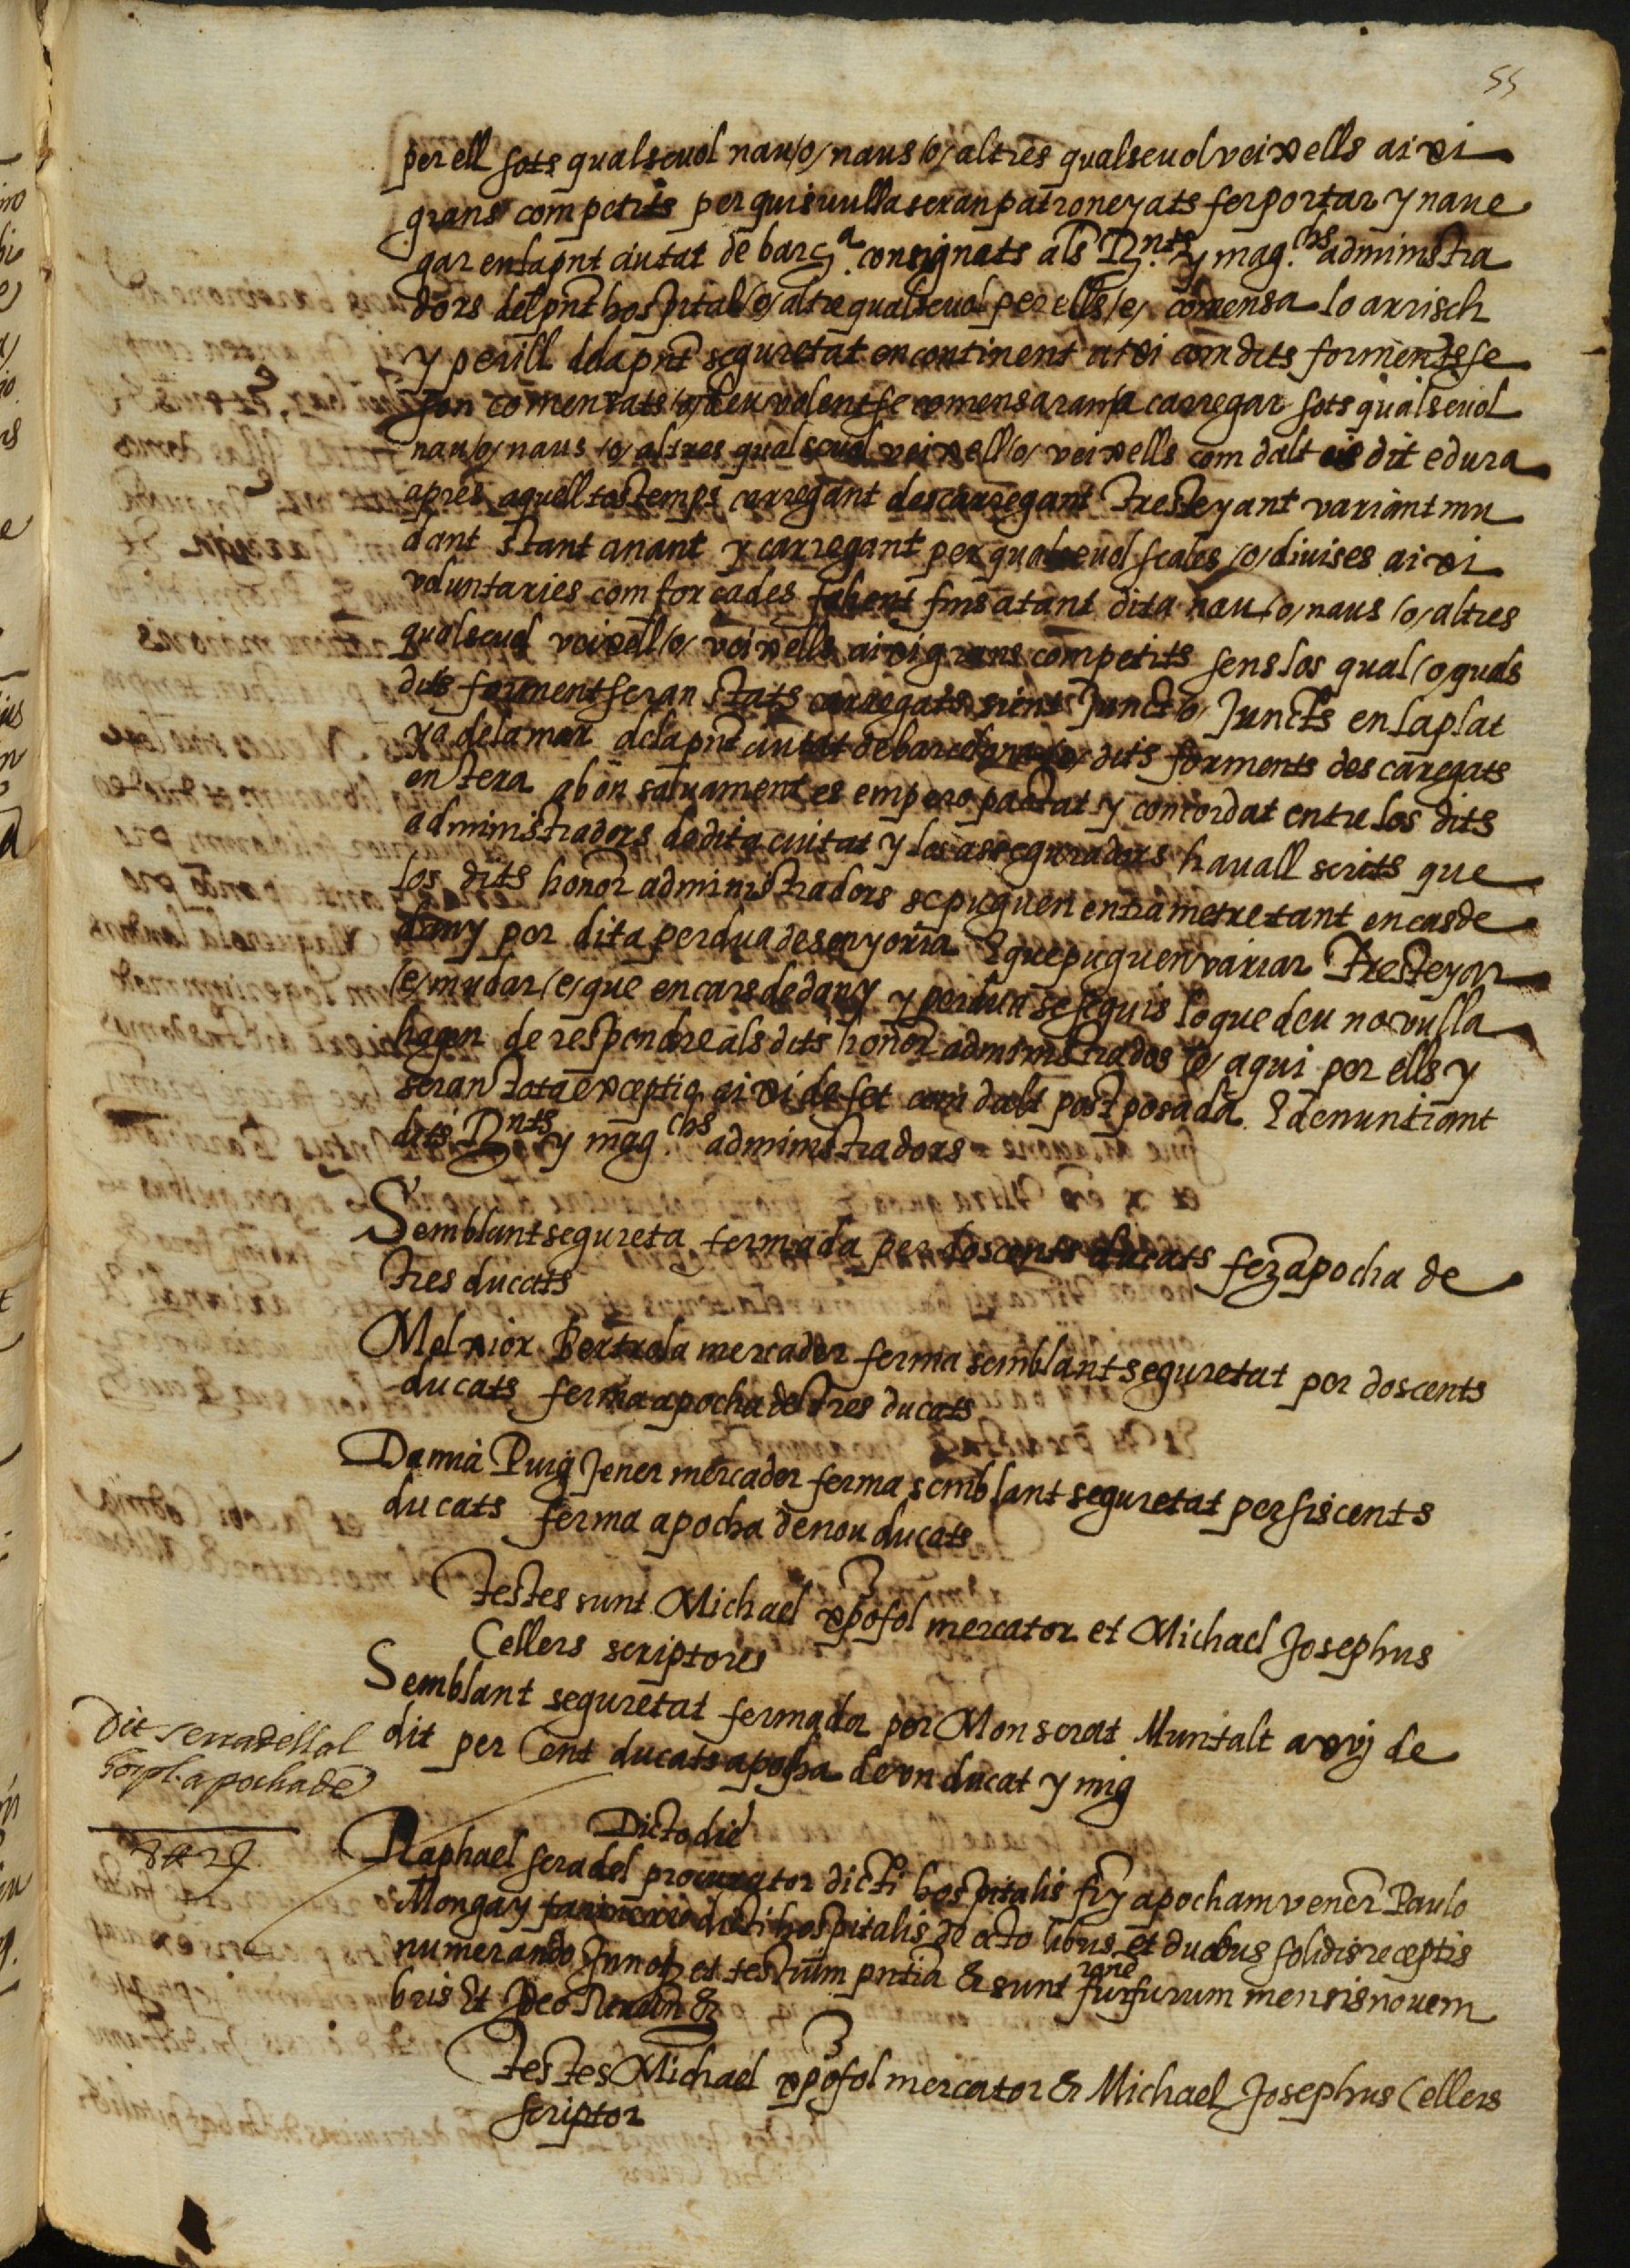 55
per ell sots qualseuol nau /o/ naus /o/ altres qualseuol veixells aixi
grans com petits per quisuulla seran patroneyats fer portar y naue
gar en la pnt ciutat de barçª. consignats als R.nts y mag.chs administra
dors del pnt hospital /o/ altre qualseuol per ells /e/ comensa lo arrisch
y perill dela pnt seguretat encontinent axi com dits forments se
son comensats /o/ deu volent se comensaran a carregar sots qualseuol
nau /o/ naus /o/ altres qualseuol veixell /o/ veixells com dalt es dit e dura
apres aquell tostemps carregant descarregant Trestejant variant mu
dant stant anant y carregant per qualseuol scales /o/ diuises aixi
voluntaries com forcades fahent fins atant dita nau /o/ naus /o/ altres
qualseuol veixell /o/ veixells aixi grans com petits sens los qual /o/ quals
dits forment seran stats carregats sient Junct /o/ Juncts en la plat
ya dela mar dela pnt ciutat de barcelona /e/ dits forments descaregats
en tera ab bon saluament es empero pactat y concordat entre los dits
administradors de dita ciutat y los asseguradors hauall scrits que
los dits honor administradors se puguen entrametre tant en cas de
dany per dita perdua de senyoria E que puguen variar Trestejar
/e/ mudar /e/ que en cars de dany y perdua se seguis lo que deu no vulla
hagen de respondre als dits honor administrados /o/ aqui per ells y
seran tota exceptio aixi de fet com dalt postposada E denuntiant
dits R.nts y mag.chs administradors
Semblant segureta fermada per doscents ducats fez apocha de
tres ducats
Melxior Bertrola mercader ferma semblant seguretat per doscents
ducats ferma apocha de tres ducats
Damià Puig Jener mercader ferma semblant seguretat per siscents
ducats ferma apocha de nou ducats
testes sunt Michael xpofol mercator et Michael Josephus
Cellers scriptores
Semblant seguretat fermada per Monserat Muntalt a xvj de
dit per Cent ducats apocha de vn ducat y mig
Dit serradell al
hospl. apocha de
8 ℔ 2 ʃ
Dicto die
Raphael seradel procurator dicti hospitalis fir apocham vener Paulo
Mongay dicti hospitalis de octo libris et duobus solidis receptis
numerando Jn not et testium pntia & sunt rone furfurum mensis nouem
bris Et Jdeo Renun &
testes Michael xpofol mercator & Michael Josephus Cellers
scriptor